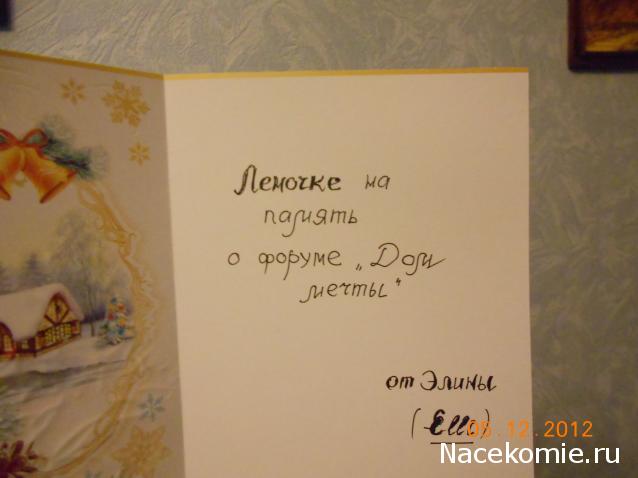 Леночке на
память
о форуме „Дом
мечты"
от Элины
05.12.2012
Nacekomie.ru